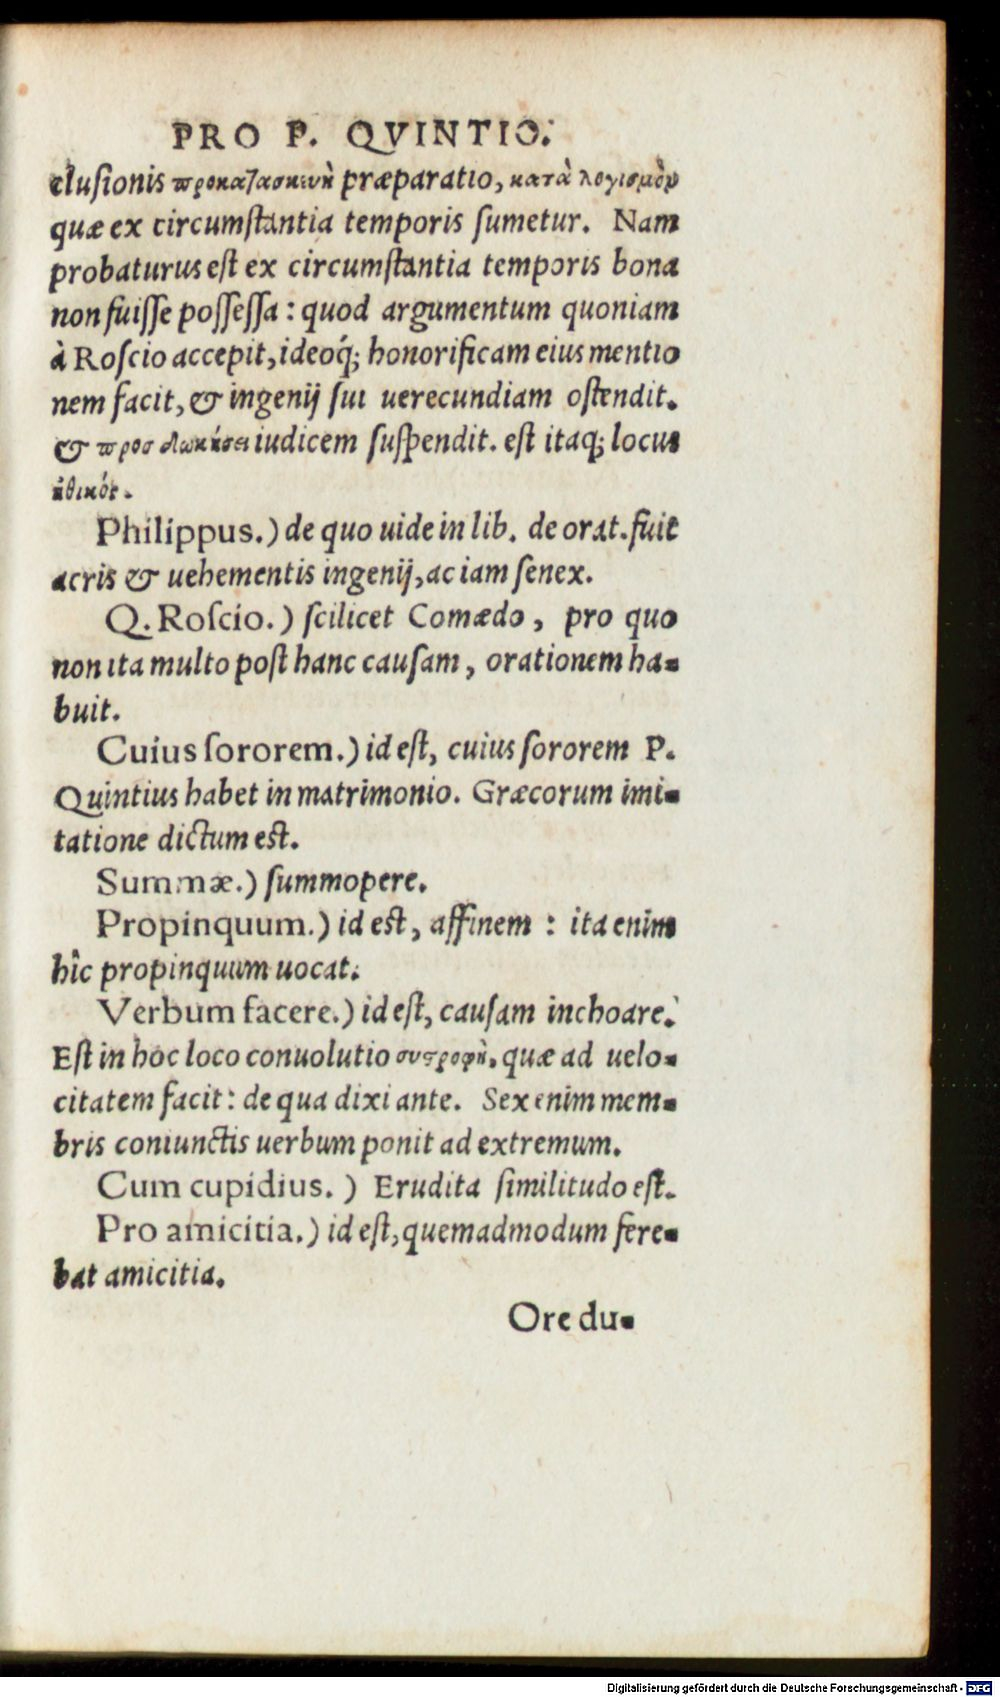 PRO P. QVINTIO.
clusionis προκατασκευὴ præparatio, κατὰ λογισμὸν
quæ ex circumſtantia temporis ſumetur. Nam
probaturus eſt ex circumſtantia temporis bona
non fuiſſe poſſeſſa : quod argumentum quoniam
à Roſcio accepit, ideoq́; honorificam eius mentio
nem facit, & ingenij ſui uerecundiam oſtendit.
& προσδοκήσει iudicem ſuſpendit. eſt itaq; locus
ἠθικός.
Philippus.) de quo uide in lib. de orat. fuit
acris & uehementis ingenij, ac iam ſenex.
Q. Roſcio.) ſcilicet Comœdo, pro quo
non ita multo poſt hanc cauſam, orationem ha-
buit.
Cuius ſororem.) id eſt, cuius ſororem P.
Quintius habet in matrimonio. Græcorum imi-
tatione dictum eſt.
Summæ.) ſummopere.
Propinquum.) id eſt, affinem : ita enim
hîc propinquum uocat.
Verbum facere.) id eſt, cauſam inchoare.
Eſt in hoc loco conuolutio συστροφὴ. quæ ad uelo-
citatem facit : de qua dixi ante. Sex enim mem-
bris coniunctis uerbum ponit ad extremum.
Cum cupidius.) Erudita ſimilitudo eſt.
Pro amicitia.) id eſt, quemadmodum fere-
bat amicitia.
Ore du-
Digitalisierung gefördert durch die Deutsche Forschungsgemeinschaft - DFG